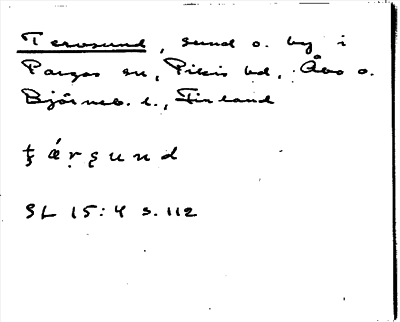 Tervsund, sund o. by i
Pargas sn, Pikis hd, Åbo o.
Björneb. l., Finland
t̨ ǽ r̨ s̨ u n d
SL 15:4 s. 112